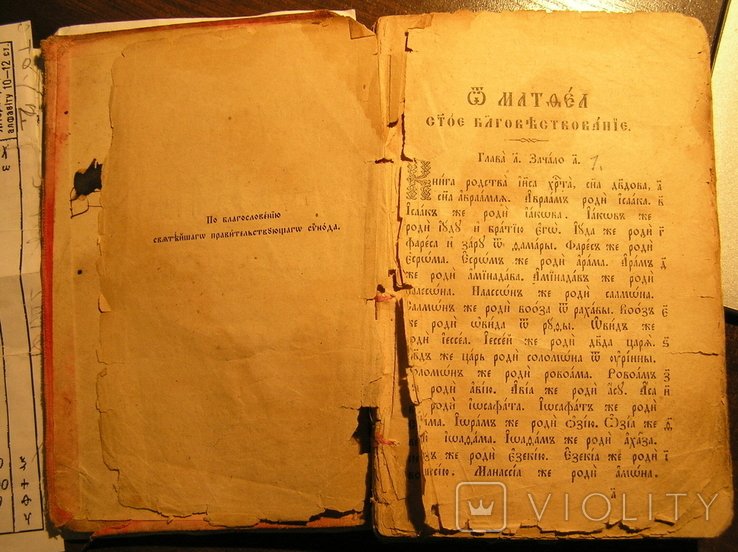 алфавіту 10–12 ст.
По благословенїю
свѧтѣйшагѡ правительствующагѡ сѵнода.
Ѿ МАТѲЕ́А
СТ҃ОЕ БЛГОВѢСТВОВА́НІЕ.
Глава̀ а҃. Зача́ло а҃. 1.
Кни́га родства̀ і҆и҃са хр҃та̀, сн҃а дв҃дова, а҃
сн҃а а҆враа́млѧ. А҆враа́мъ родѝ і҆саа́ка. в҃
І҆саа́къ же родѝ і҆а́кѡва. І҆а́кѡвъ же
родѝ і҆ꙋ́дꙋ и҆ бра́тїю є҆гѡ̀. І҆ꙋ́да же родѝ г҃
фаре́са и҆ за́рꙋ ѿ ѳама́ры. Фаре́съ же родѝ
є҆срѡ́ма. Є҆срѡ́мъ же родѝ а҆ра́ма. А҆ра́мъ д҃
же родѝ а҆мїнада́ва. А҆мїнада́въ же родѝ
наассѡ́на. Наассѡ́нъ же родѝ салмѡ́на.
Салмѡ́нъ же родѝ воо́за ѿ раха́вы. Воо́зъ є҃
же родѝ ѡ҆ви́да ѿ рꙋ́ѳы. Ѡ҆ви́дъ же
родѝ і҆ессе́а. І҆ессе́й же родѝ дв҃да царѧ̀. ѕ҃
Дв҃дъ же ца́рь родѝ соломѡ́на ѿ ᲂу҆рі́ины.
Соломѡ́нъ же родѝ ровоа́ма. Ровоа́мъ з҃
же родѝ а҆ві́ю. А҆ві́а же родѝ а҆́сꙋ. А҆́са и҃
родѝ і҆ѡсафа́та. І҆ѡсафа́тъ же родѝ
же родѝ ѻ҆зі́ю. Ѻ҆зі́а же ѳ҃
і҆ѡаѳа́ма. І҆ѡаѳа́мъ же родѝ а҆ха́за.
же родѝ є҆зекі́ю. Є҆зекі́а же родѝ і҃
Манассі́а же родѝ а҆мѡ́на.
а҃
VIOLITY